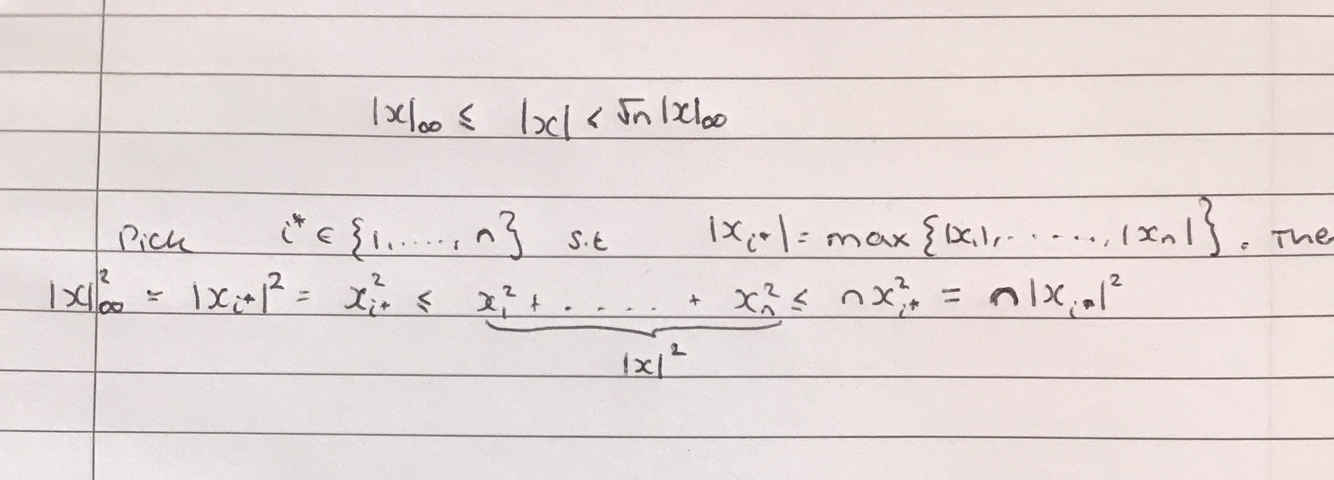 |x|∞ ≤ |x| < √n |x|∞
Pick i* ∈ {1, ....., n} s.t |xᵢ*| = max {|x₁|, ......, |xₙ|}. The
|x|²∞ = |xᵢ*|² = x²ᵢ* ≤ x₁² + ..... + xₙ² ≤ nx²ᵢ* = n|xᵢ*|²
|x|²